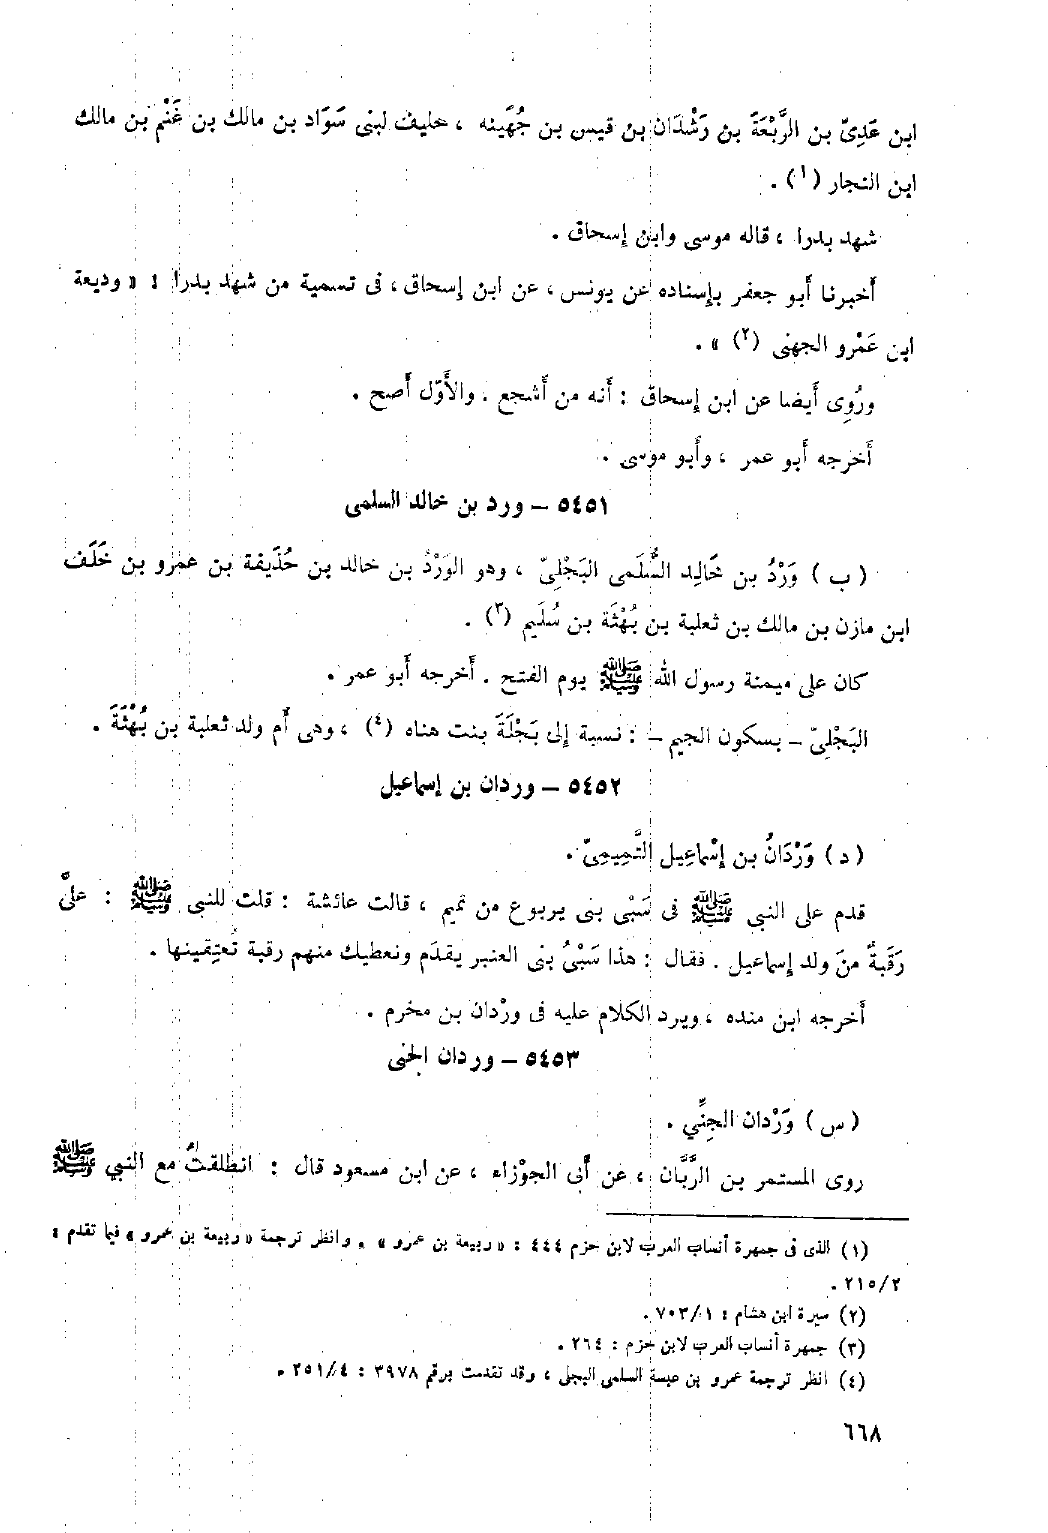 ابن عَدِىّ بن الرَّبْعَة بن رَشْدَان بن قيس بن جُهَينه ، حليف لبنى سَوَاد بن مالك بن غَنْم بن مالك
ابن النجار (١) .
شهد بدرا ، قاله موسى وابن إسحاق .
أخبرنا أبو جعفر بإسناده عن يونس ، عن ابن إسحاق ، فى تسمية من شهد بدرا : « وديعة
ابن عَمْرو الجهنى (٢) » .
ورُوِى أيضا عن ابن إسحاق : أنه من أشجع . والأَوّل أصح .
أخرجه أبو عمر ، وأبو موسى .
٥٤٥١ – ورد بن خالد السلمى
( ب ) وَرْدُ بن خَالِد السُّلَمى البَجْلِىّ ، وهو الوَرْدُ بن خالد بن حُذَيفة بن عمرو بن خَلَف
ابن مازن بن مالك بن ثعلبة بن بُهْثَة بن سُلَيم (٣) .
كان على ميمنة رسول الله ﷺ يوم الفتح . أخرجه أبو عمر .
البَجْلِىّ – بسكون الجيم – : نسبة إلى بَجْلَةَ بنت هناه (٤) ، وهى أم ولد ثعلبة بن بُهْثَةَ .
٥٤٥٢ – وردان بن إسماعيل
( د ) وَرْدَانُ بن إسْماعِيل التَّمِيمِىّ .
قدم على النبى ﷺ فى سَبْى بنى يربوع من تميم ، قالت عائشة : قلت للنبى ﷺ : علىَّ
رَقَبةٌ منَ ولد إسماعيل . فقال : هذا سَبْىُ بنى العنبر يقدَم ونعطيك منهم رقبة تُعتِقينها .
أخرجه ابن منده ، ويرد الكلام عليه فى ورْدان بن مخرم .
٥٤٥٣ – وردان الجنى
( س ) وَرْدان الجِنِّي .
روى المستمر بن الرَّيَّان ، عن أبى الجوْزاء ، عن ابن مسعود قال : انطلقتُ مع النبي ﷺ
(١) الذى فى جمهرة أنساب العرب لابن حزم ٤٤٤ : « ربيعة بن عمرو » . وانظر ترجمة « ربيعة بن عمرو » فيما تقدم :
٢/٢١٥ .
(٢) سيرة ابن هشام : ١/٧٠٣ .
(٣) جمهرة أنساب العرب لابن حزم : ٢٦٤ .
(٤) انظر ترجمة عمرو بن عبسة السلمى البجلى ، وقد تقدمت برقم ٣٩٧٨ : ٤/٢٥١ .
٦٦٨